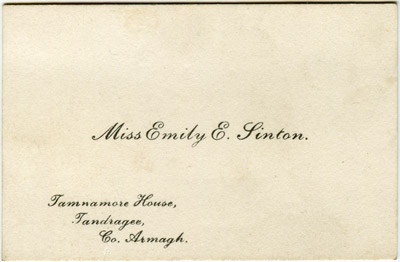 Miss Emily E. Sinton.
Tamnamore House,
Tandragee,
Co. Armagh.